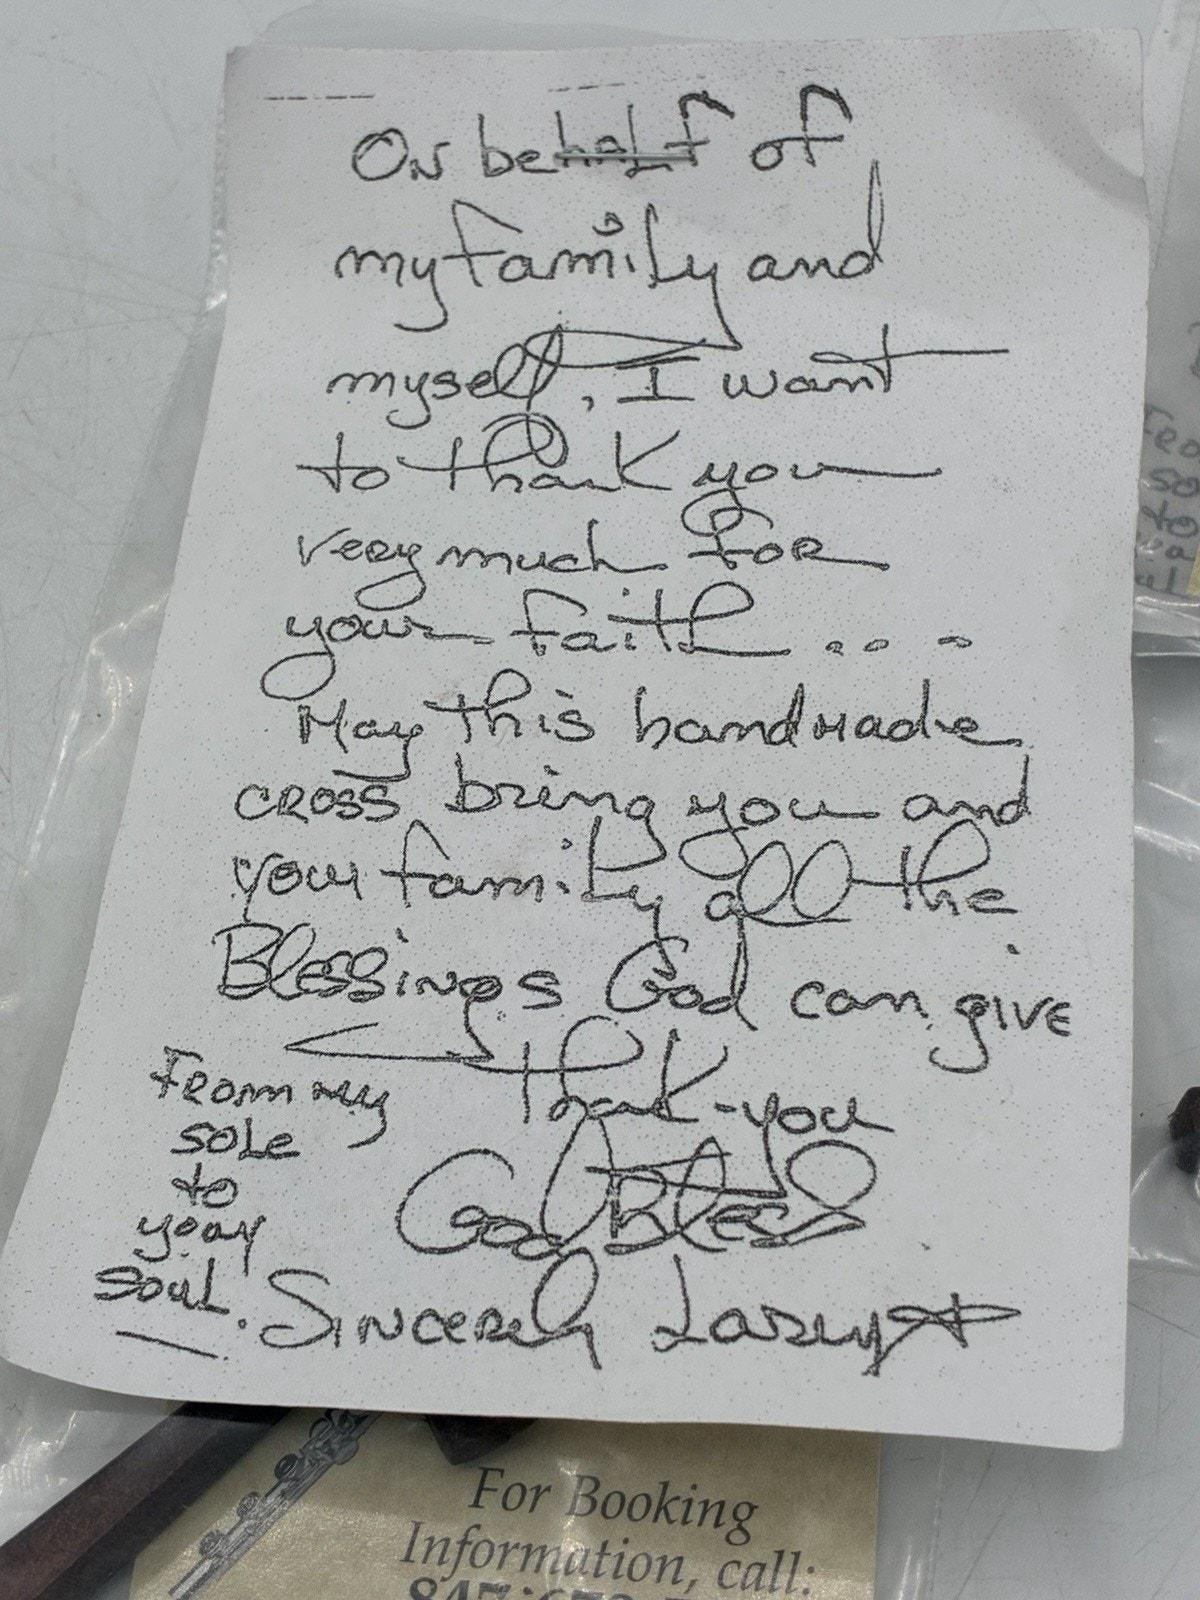 On behalf of
my family and
myself, I want
to thank you
very much for
your faith....
May this handmade
cross bring you and
your family all the
Blessings God can give
Thank-you
From my
sole
to
your
soul.
God Bless
Sincerely Larry
For Booking
Information, call:
so
to